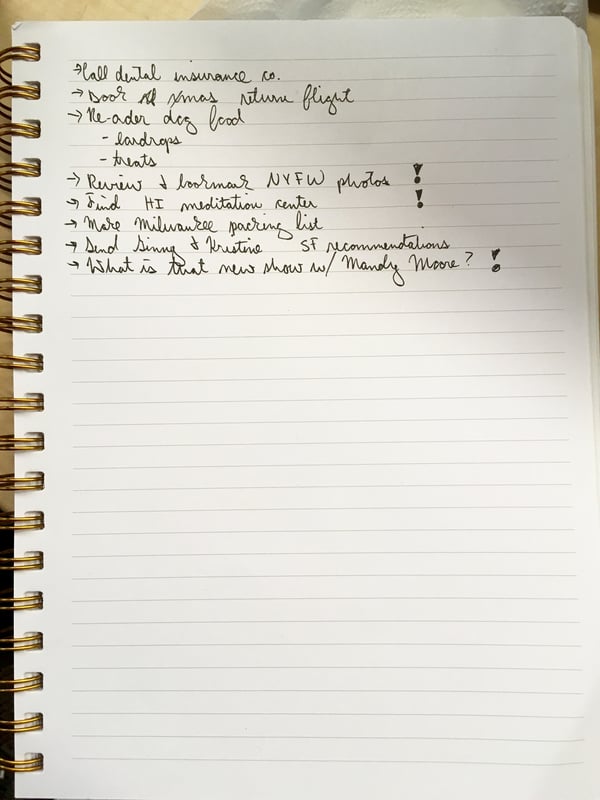 → Call dental insurance co.
→ Book xmas return flight
→ Re-order dog food
- eardrops
- treats
→ Review & bookmark NYFW photos !
→ Find HI meditation center !
→ Make Milwaukee packing list
→ Send Ginny & Kristine SF recommendations
→ What is that new show w/ Mandy Moore? !